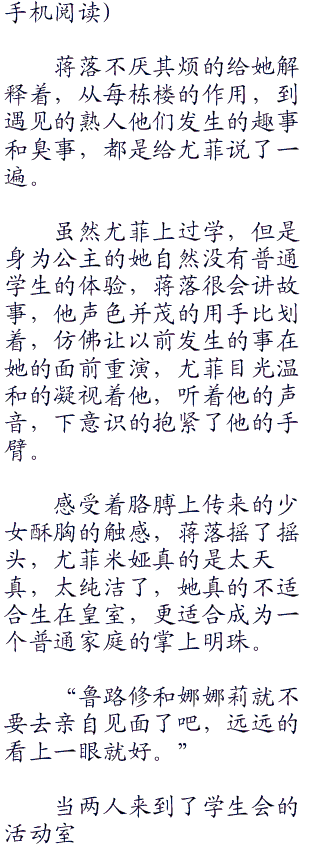 手机阅读）
蒋落不厌其烦的给她解
释着，从每栋楼的作用，到
遇见的熟人他们发生的趣事
和臭事，都是给尤菲说了一
遍。
虽然尤菲上过学，但是
身为公主的她自然没有普通
学生的体验，蒋落很会讲故
事，他声色并茂的用手比划
着，仿佛让以前发生的事在
她的面前重演，尤菲目光温
和的凝视着他，听着他的声
音，下意识的抱紧了他的手
臂。
感受着胳膊上传来的少
女酥胸的触感，蒋落摇了摇
头，尤菲米娅真的是太天
真，太纯洁了，她真的不适
合生在皇室，更适合成为一
个普通家庭的掌上明珠。
“鲁路修和娜娜莉就不
要去亲自见面了吧，远远的
看上一眼就好。”
当两人来到了学生会的
活动室